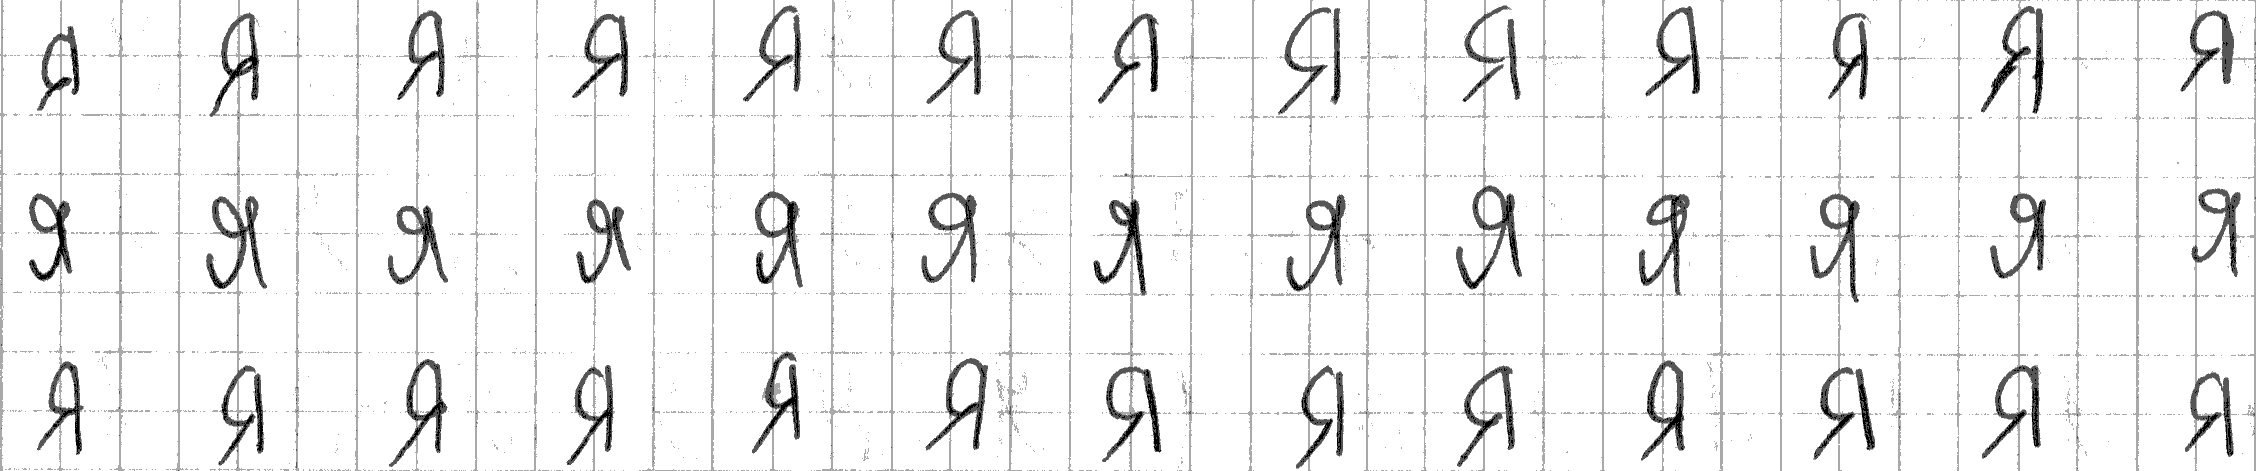 Я Я Я Я Я Я Я Я Я Я Я Я Я
Я Я Я Я Я Я Я Я Я Я Я Я Я
Я Я Я Я Я Я Я Я Я Я Я Я Я